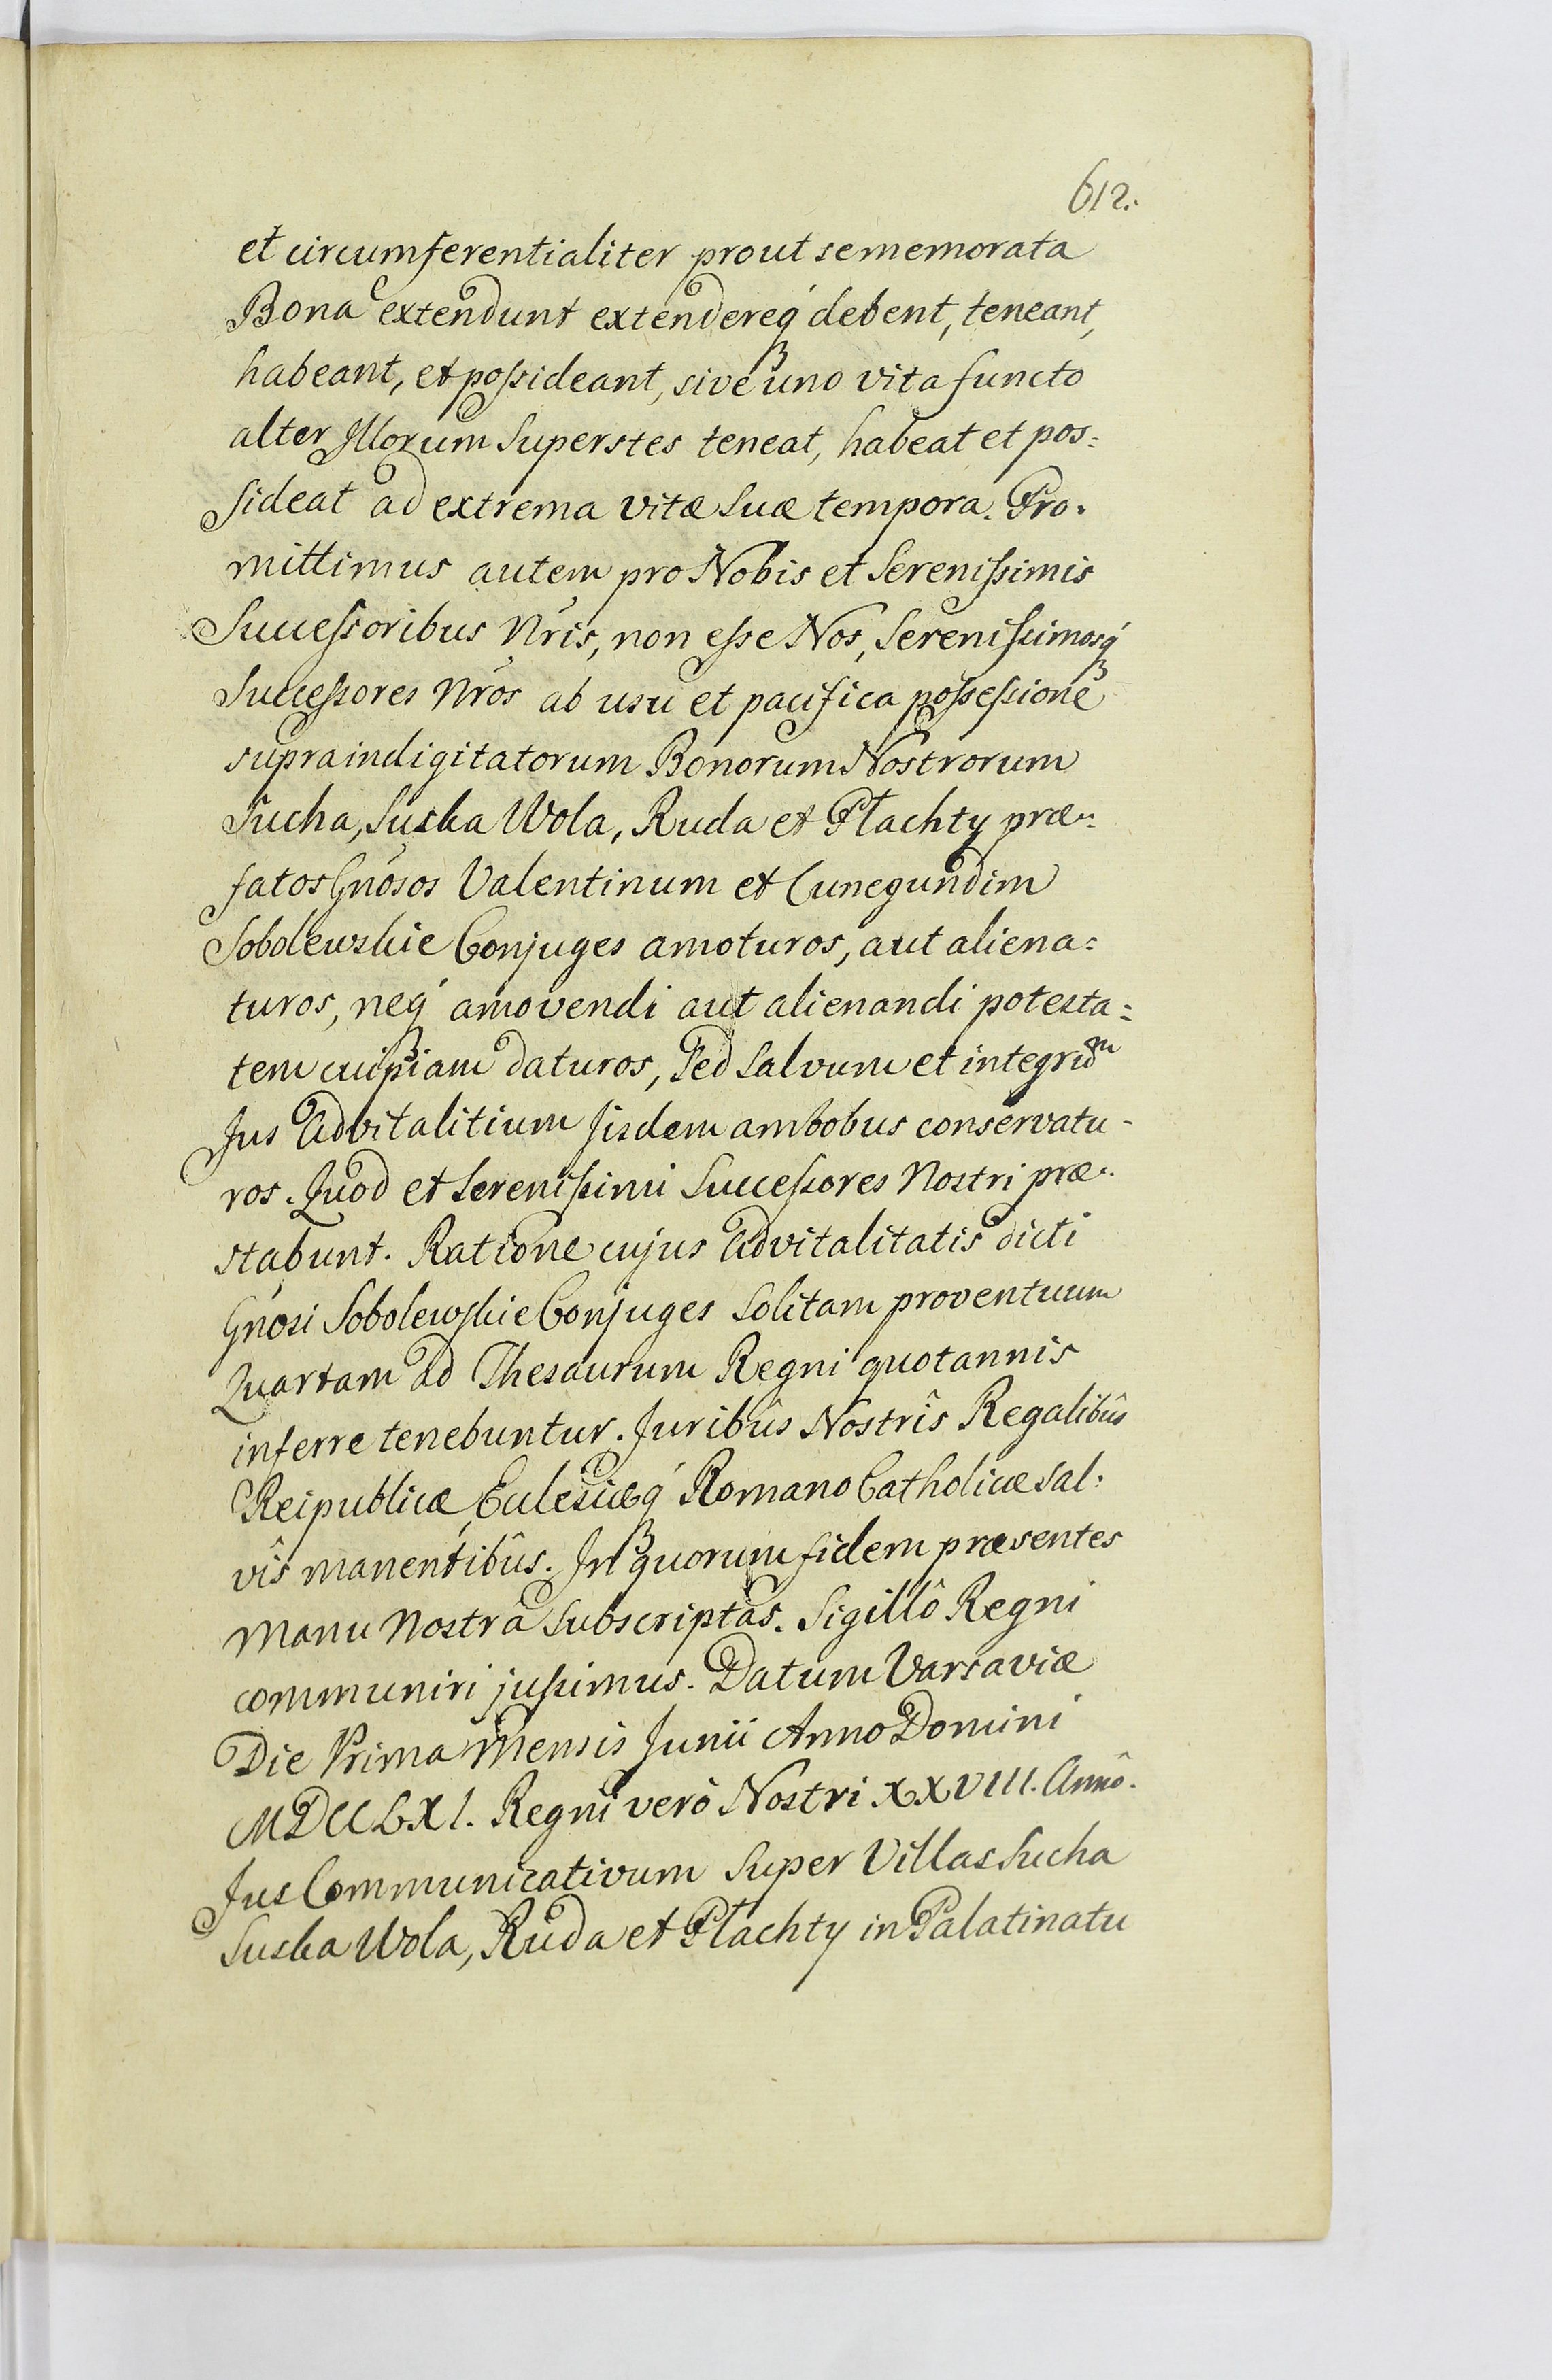 612.
et circumferentialiter prout se memorata
Bona extendunt extendereq́ debent, teneant,
habeant, et poſsideant, sive uno vita functo
alter Illorum Superstes teneat, habeat et pos=
sideat ad extrema vitæ suæ tempora. Pro=
mittimus autem pro Nobis et Sereniſsimis
Succeſsoribus Nr̃is, non eſse Nos, Sereniſsimosq́
Succeſsores Nr̃os ab usu et pacifica poſseſsione
supraindigitatorum Bonorum Nostrorum
Sucha, Suska Wola, Ruda et Płachty præ=
fatos Gñosos Valentinum et Cunegundim
Sobolewskie Conjuges amoturos, aut aliena=
turos, neq́ amovendi aut alienandi potesta=
tem cuipiam daturos, Sed salvum et integrum
Jus Advitalitium Jisdem ambobus conservatu=
ros. Quod et Sereniſsimi Succeſsores Nostri præ=
stabunt. Ratione cujus Advitalitatis dicti
Gñosi Sobolewskie Conjuges Solitam proventuum
Quartam ad Thesaurum Regni quotannis
inferre tenebuntur. Juribûs Nostrîs Regalibûs
Reipublicæ, Eclesiæq́ Romano Catholicæ sal=
vîs manentibûs. In quorum fidem præsentes
Manu Nostrâ subscriptas. Sigillô Regni
communiri juſsimus. Datum Varsaviæ
Die Prima Mensis Junii Anno Domini
MDCCLXI. Regni verò Nostri XXVIII. Annô.
Jus Communicativum super Villas Sucha
Suska Wola, Ruda et Płachty in Palatinatu